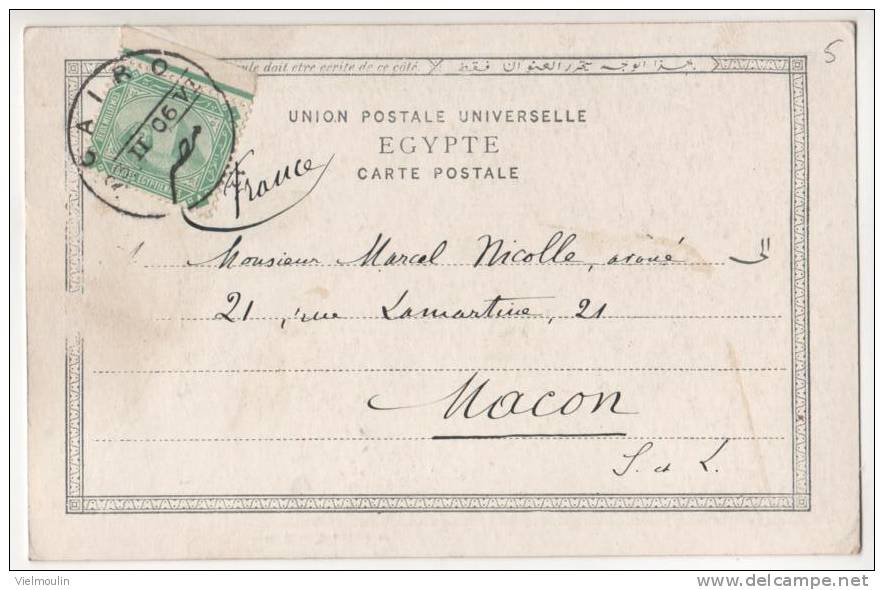 5
ule doit être écrite de ce côté. بهذا الوجه يحرر العنوان فقط
CAIRO
II 06
UNION POSTALE UNIVERSELLE
EGYPTE
CARTE POSTALE
France
Monsieur Marcel Nicolle, avoué إلى
21, rue Lamartine, 21
Macon
S. et L.
Vielmoulin
delcampe.net